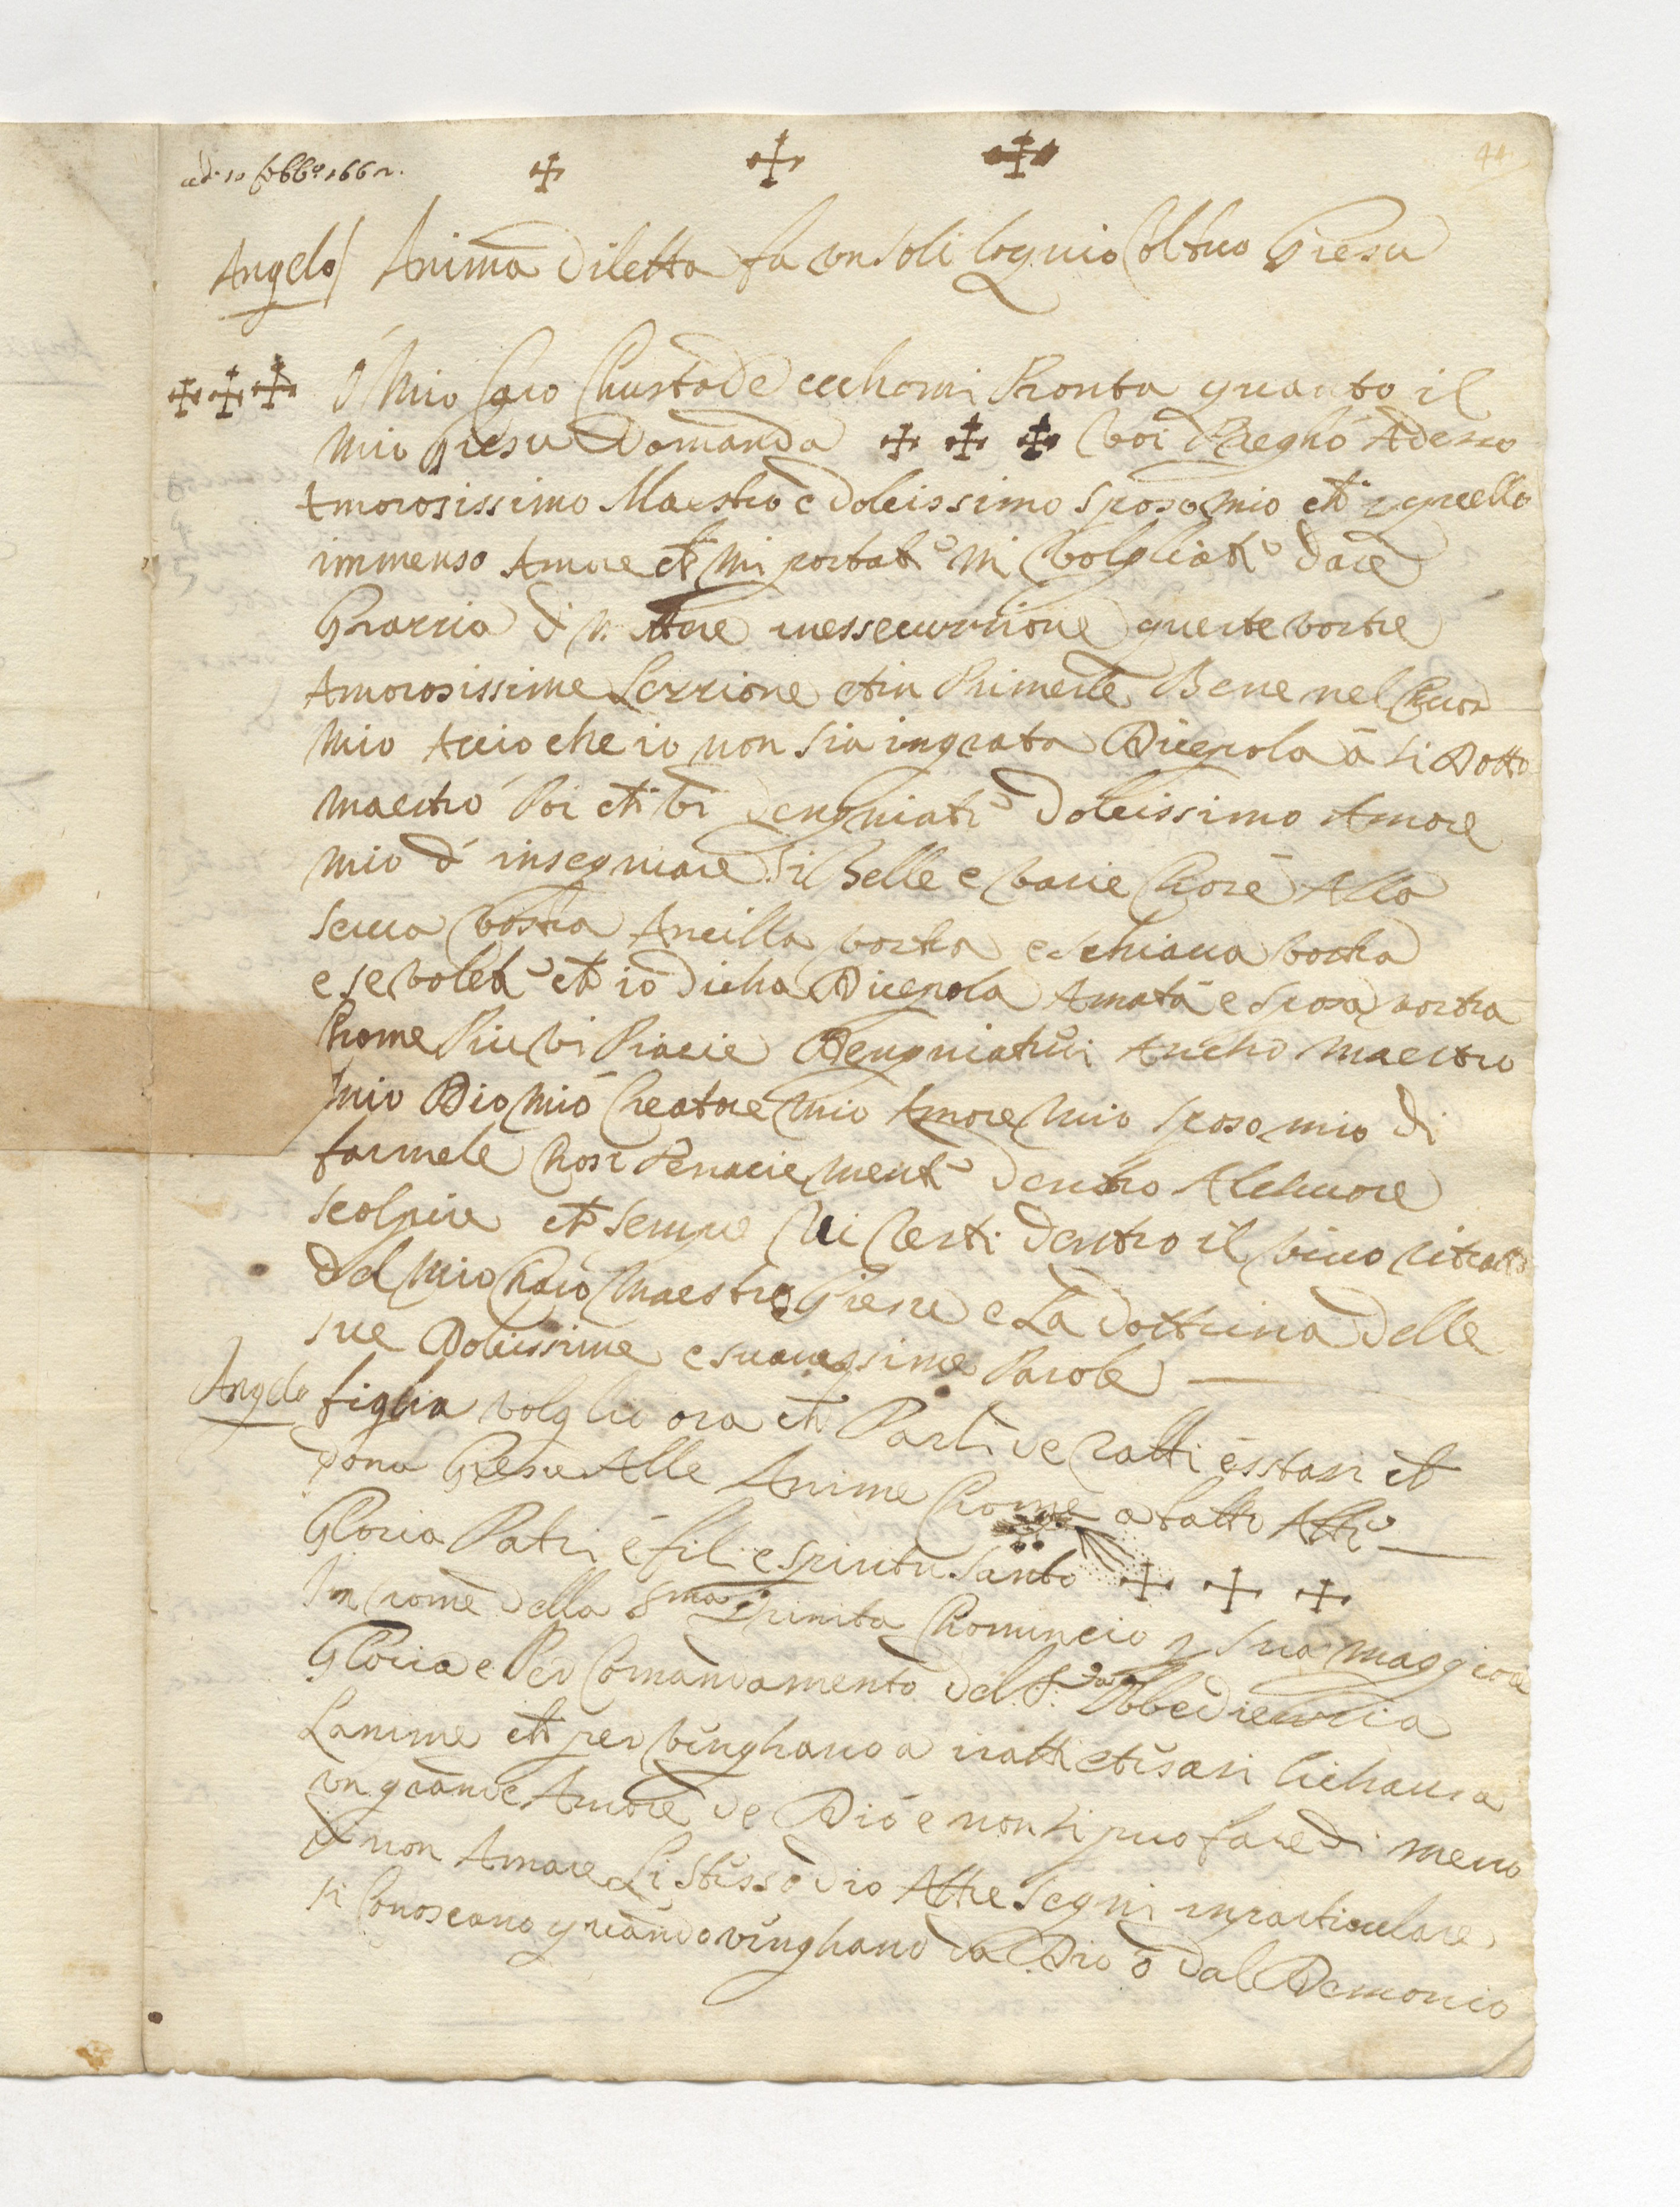 adi 10 febb.o 1662.
44
Angelo/ Anima diletta fa un soliloquio col tuo Giesu
O Mio Caro Chustode ecchomi Pronta quanto il
mio Giesu Domanda voi Preghò Adesso
Amorosissimo Maestro e dolcissimo sposo mio ch quello
immenso Amore ch mi portate mi volgliate dare
Grazzia di Mettere queste vostre
Amorosissime Lezzione Bene nel Chuor
mio Accio che io non sia ingrata Dicepola à si Dotto
maestro Poi ch vi dengniate dolcissimo Amore
mio d' insegniare si Belle e varie Chose Alla
serva vostra Ancilla vostra e schiava vostra
e se volete ch io dicha Dicepola Amata e sposa vostra
Chome Piu vi Piacie Dengniatevi Ancho maestro
mio Dio mio Creatore mio Amore mio sposo mio di
farmele Chosi Tenacie mente dentro Al Chuore
scolpire ch sempre vi resti dentro il vivo ritratto
del mio Charo maestro Giesu e La dottrina delle
sue Dolcissime e suavessime Parole
Angelo figlia volglio ora ch Parli de ratti èsstasi ch
dona Giesu Alle Anime Chome a fatto Atte
Gloria Patri e filie spiritu santo
In nome della S.ma Trinita Chomincio p sua maggiore
Gloria e Per Comandamento del S.ta Obbedienzia
Lanime ch per venghano a ratti
un grande Amore de Dio e non si puo fare di meno
di non Amare Listesso dio Altre segni in particulare
si Conoscano quando venghano da Dio ò dal Demonio